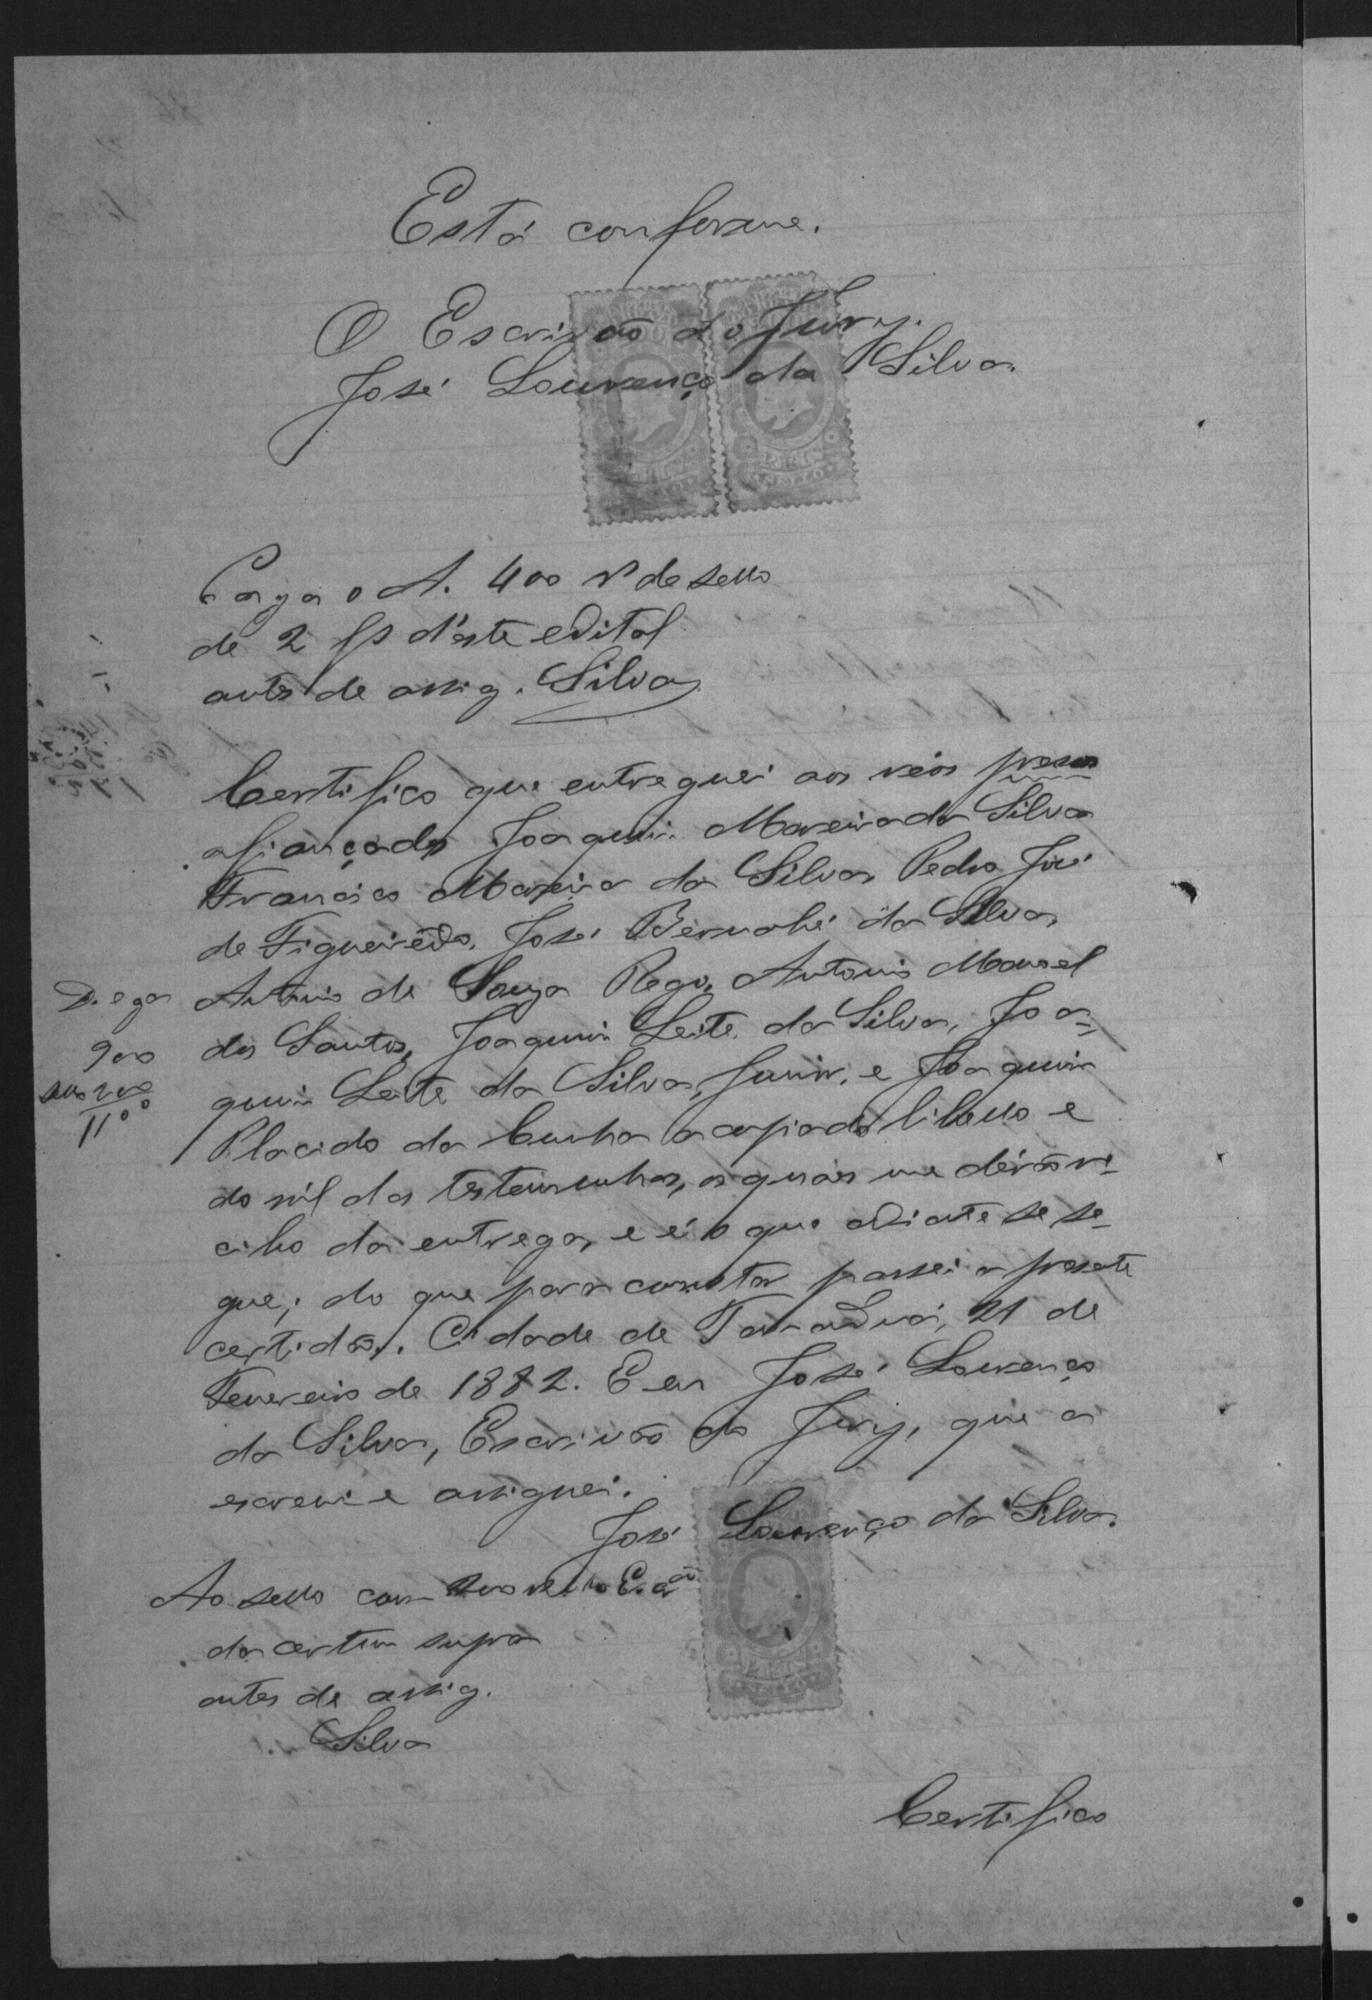 Está conforme.
O Escrivão do Jury.
José Lourenço da Silva.
Paga o A. 400 rs de sello
de 2 fs d'este edital
antes de assig. Silva
Certifico que entreguei aos réos presos
afiançados Joaquim Moreira da Silva
Francisco Moreira da Silva, Pedro José
de Figueirêdo, José Bernabé da Silva,
Antonio de Souza Rego, Antonio Manoel
dos Santos, Joaquim Leite da Silva, Joa-
quim Leite da Silva, Junior, e Joaquim
Placido da Cunha a copia do libello e
do rol das testemunhas, os quaes me dérão re-
cibo da entrega, e é o que adiante se se-
gue; do que para constar passei a presente
certidão. Cidade de 21 de
Fevereiro de 1882. E eu José Lourenço
da Silva, Escrivão do Jury, que a
escrevi e assignei.
José Lourenço da Silva.
Dilega
900
sello 200
1100
Ao sello com
da certam supra
antes de assig.
Silva
Certifico